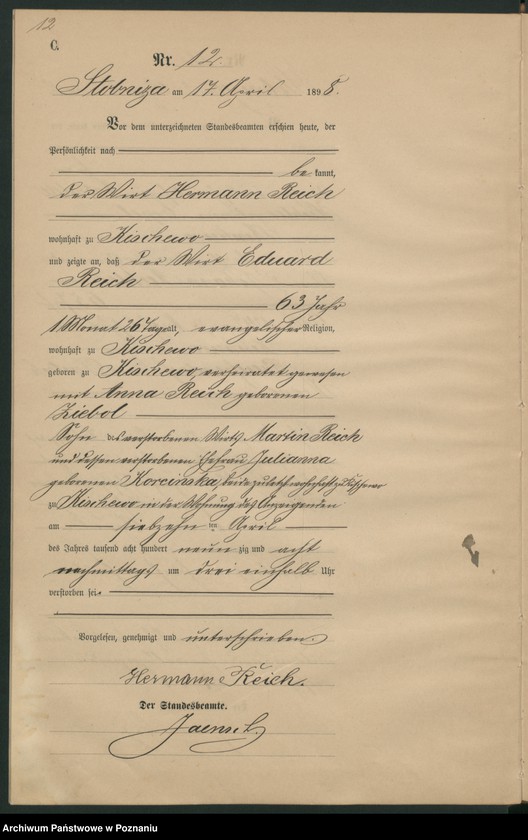 12
C.
Nr. 12.
Stobniza am 17. April 1898.
Vor dem unterzeichneten Standesbeamten erschien heute, der
Persönlichkeit nach
bekannt,
der Wirt Hermann Reich
wohnhaft zu Kischewo
und zeigte an, daß der Wirt Eduard
Reich
63 Jahr
1 Monat 26 Tage alt, evangelischer Religion,
wohnhaft zu Kischewo
geboren zu Kischewo, verheiratet gewesen
mit Anna Reich geborenen
Ziebol
Sohn des verstorbenen Wirts Martin Reich
und dessen verstorbenen Ehefrau Julianna
geborenen Korcinska, beide zuletzt wohnhaft zu Kischewo
zu Kischewo in der Wohnung des Anzeigenden
am siebzehn ten April
des Jahres tausend acht hundert neunzig und acht
nachmittags um drei einhalb Uhr
verstorben sei.
Vorgelesen, genehmigt und unterschrieben.
Hermann Reich.
Der Standesbeamte.
Jaensch
Archiwum Państwowe w Poznaniu